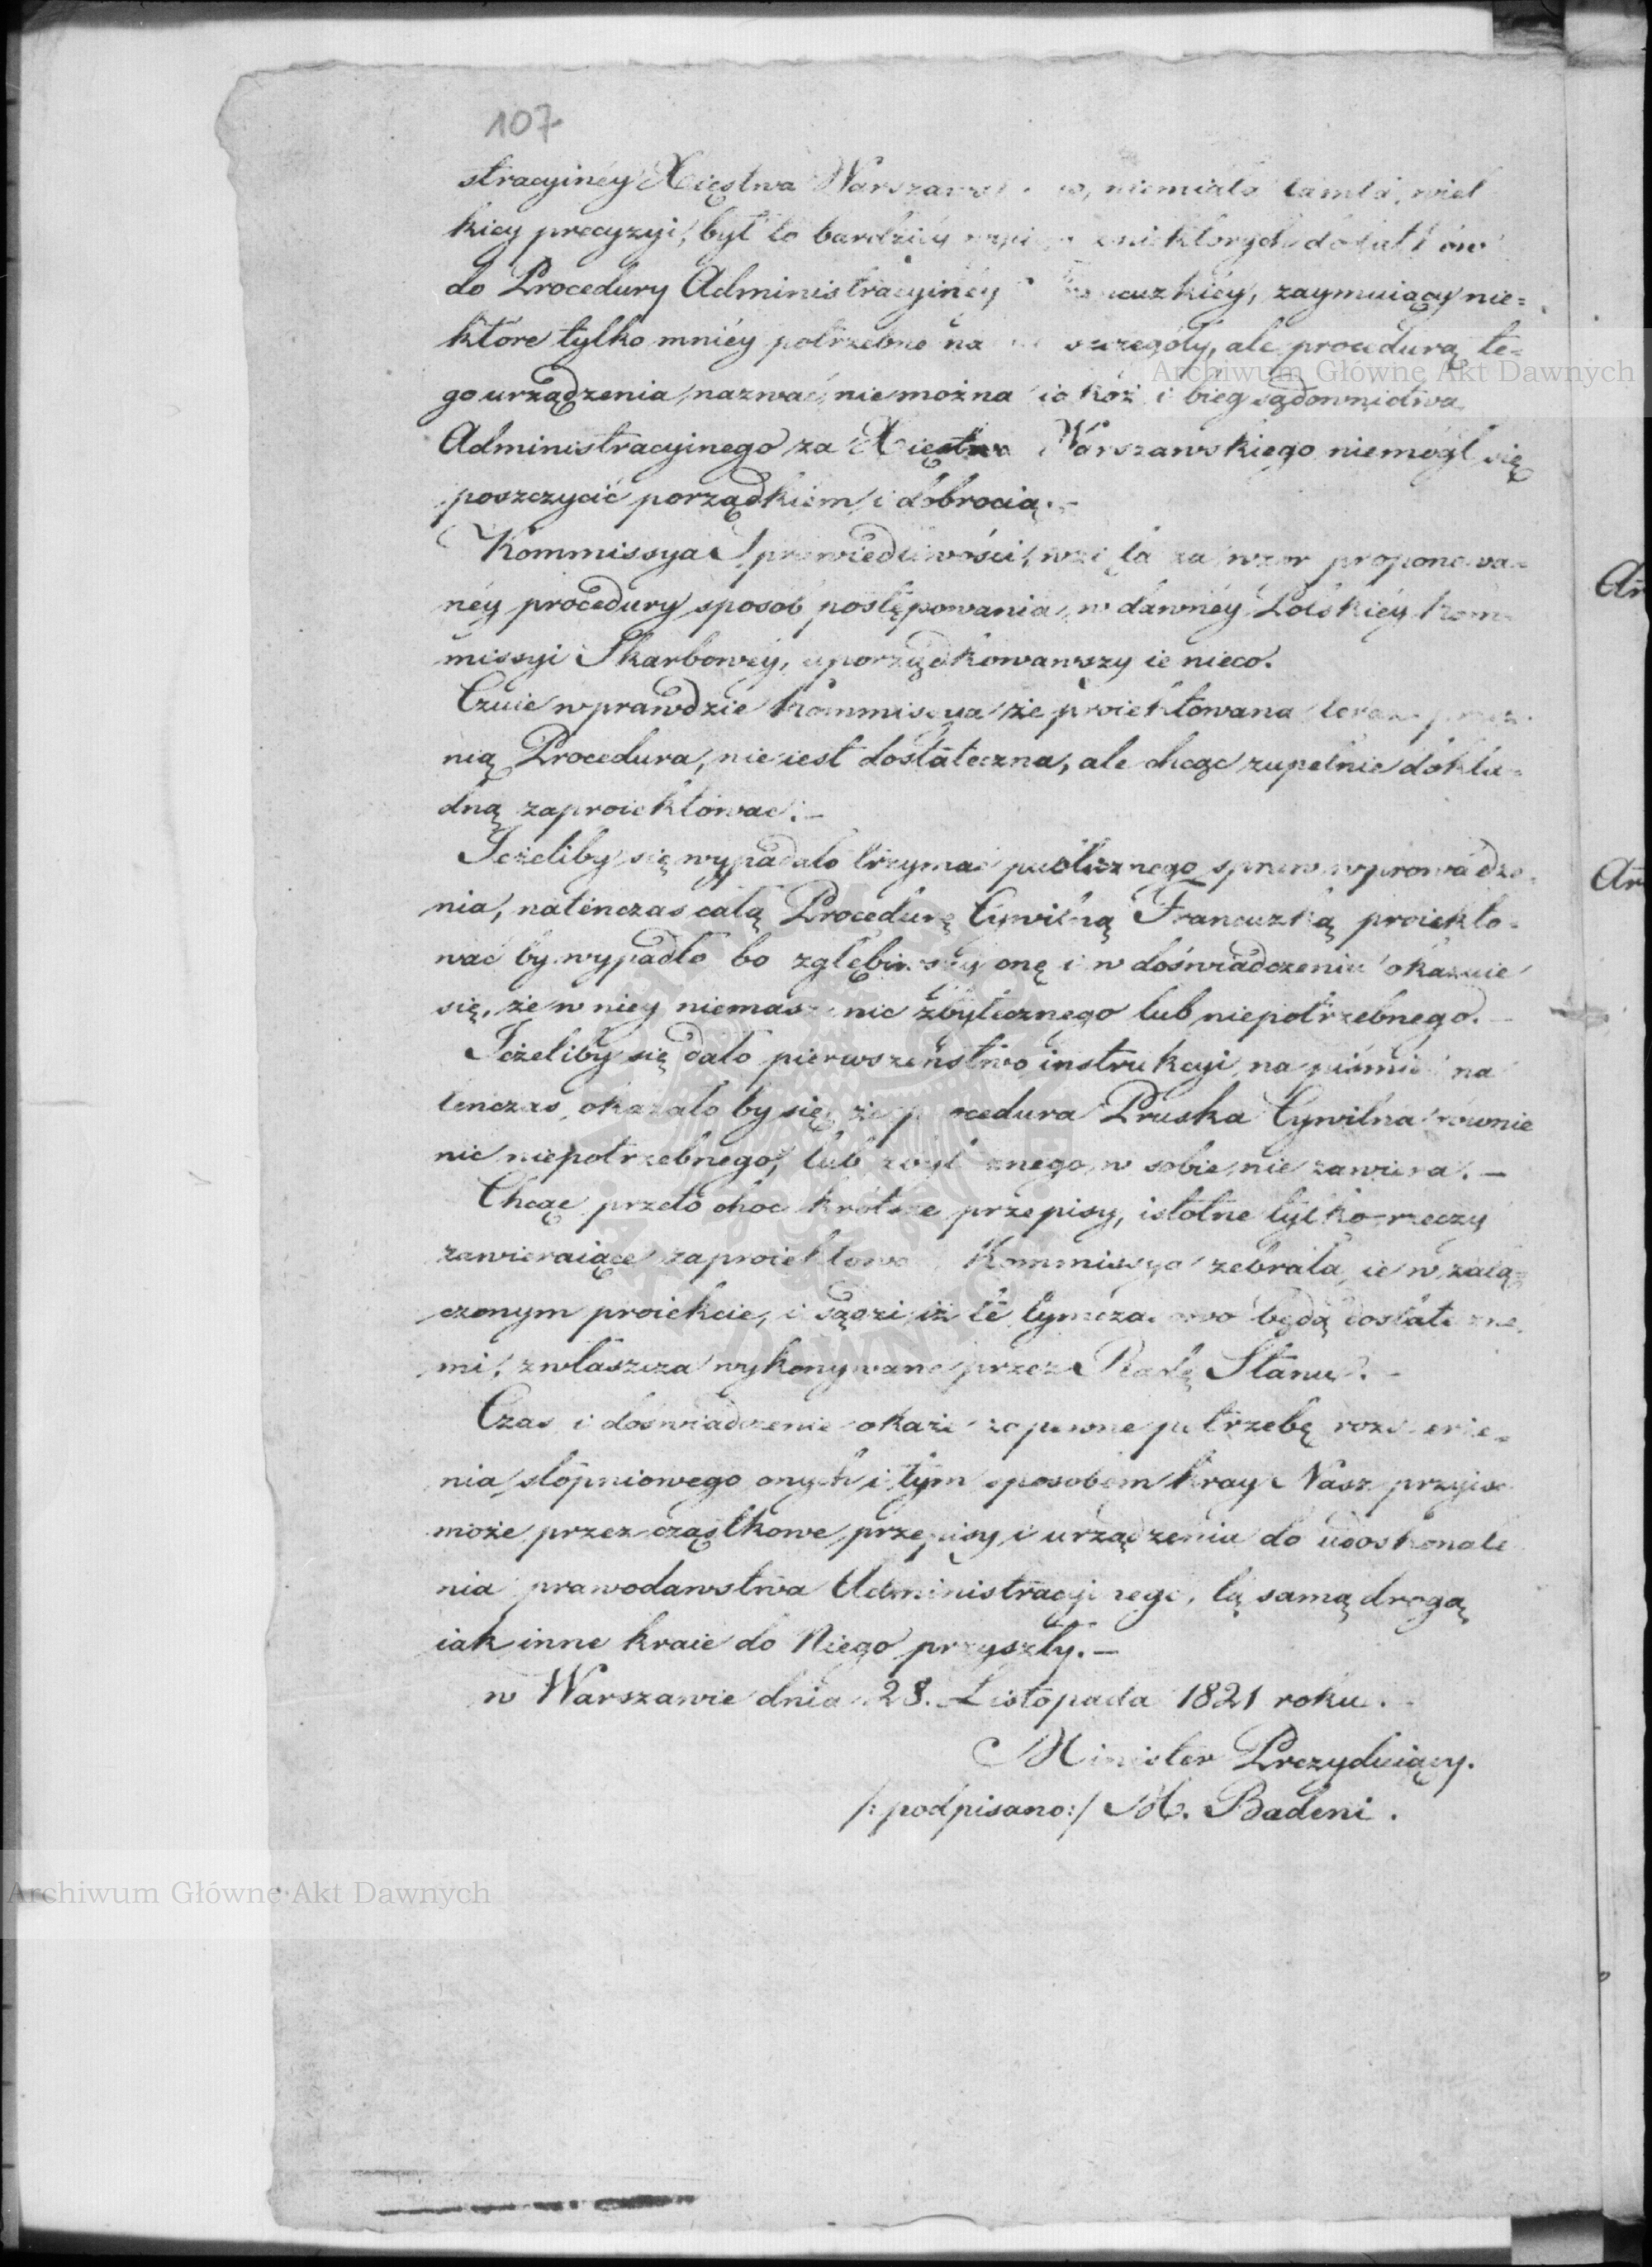 107
stracyinéy Xięstwa niemiała tamta, wiel
kiey precyzyi, był to bardziéy niektórych dodatków
do Procedury Administracyinéy Francuzkiéy, zaymuiący nie=
które tylko mniéy potrzebne na szczegóły, ale procedurą te=
go urządzenia nazwać niemożna iakoż i bieg sądownictwa
Administracyinego za Xięstwa Warszawskiego niemógł się
poszczycić porządkiem i dobrocią.—
Kommissya Sprawiedliwości, wzięła za wzor proponowa=
néy procedury sposob postępowania w dawnéy Polskiéy Kom=
missyi Skarbowéy, uporządkowawszy ie nieco.
Czuie wprawdzie Kommissya że proiektowana teraz przez
nią Procedura, nie iest dostateczna, ale chcąc zupełnie dokła=
dną zaproiektować:—
Jeżeliby się wypadało trzymać publicznego spraw wprowadze=
nia, natenczas całą Procedurę Cywilną Francuzką proiekto=
wać by wypadło bo zgłębiwszy onę i w doświadczeniu okazuie
się, że w niey niemasz nic zbytecznego lub niepotrzebnego.—
Jeżeliby się dało pierwszeństwo instrukcyi na piśmie na
tenczas okazało by się, że procedura Pruska Cywilna równie
nic niepotrzebnego, lub zbytecznego w sobie nie zawiera.—
Chcąc przeto choć krótsze przepisy, istotne tylko rzeczy
zawieraiące zaproiektować Kommissya zebrała ie w załą=
czonym proiekcie, i sądzi iż te tymczasowo będą dostateczne=
mi, zwłaszcza wykonywane przez Radę Stanu.—
Czas i doświadczenie okaże zapewne potrzebę rozszerze=
nia stopniowego onych i tym sposobem kray Nasz przyiść
może przez cząstkowe przepisy i urządzenia do udoskonale
nia prawodawstwa Administracyinego, tą samą drogą
iak inne kraie do Niego przyszły.—
w Warszawie dnia 28. Listopada 1821 roku.
Minister Prezyduiący.
/: podpisano:/ M. Badeni.
Ar
Ar
Archiwum Główne Akt Dawnych
Archiwum Główne Akt Dawnych